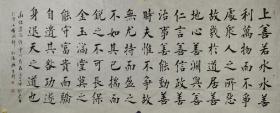 上善若水水善
利萬物而不爭
處衆人之所惡
故幾於道居善
地心善淵與善
仁言善信政善
治事善能動善
時夫惟不爭故
無尤持而盈之
不如其已揣而
銳之不可長保
金玉滿堂莫之
能守富貴而驕
自遺其咎功遂
身退天之道也